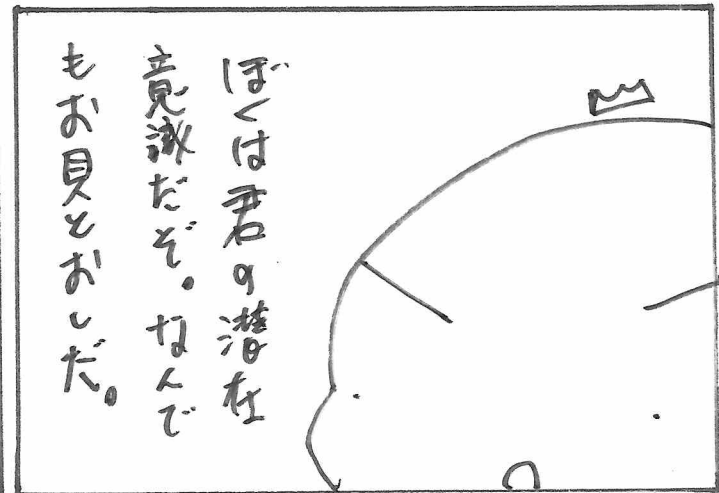 ぼくは君の潜在
意識だぞ。なんで
もお見とおしだ。